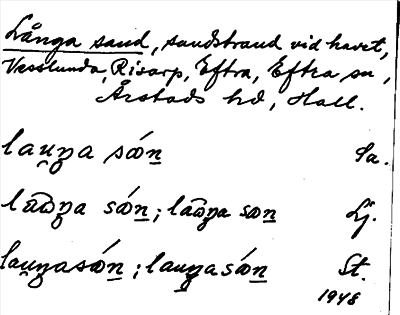 Långa sand, sandstrand vid havet,
Vesslunda, Risarp, Eftra, Eftra sn,
Årstads hd, Hall.
lau̯ŋa són̲ Sa.
són̲; son̲ Lj.
lau̯ŋasón̲; lau̯ŋasón̲ St.
1948